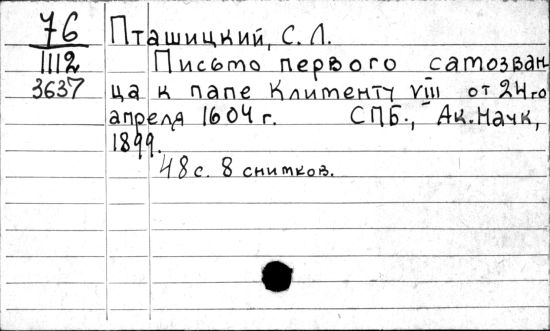 76 Пташицкий, С. Л.
1112 Письмо первого самозван
3637 ца к папе Клименту VIII от 24го
апреля 1604 г. СПБ., Ак. Наук,
1899.
48 с. 8 снимков.